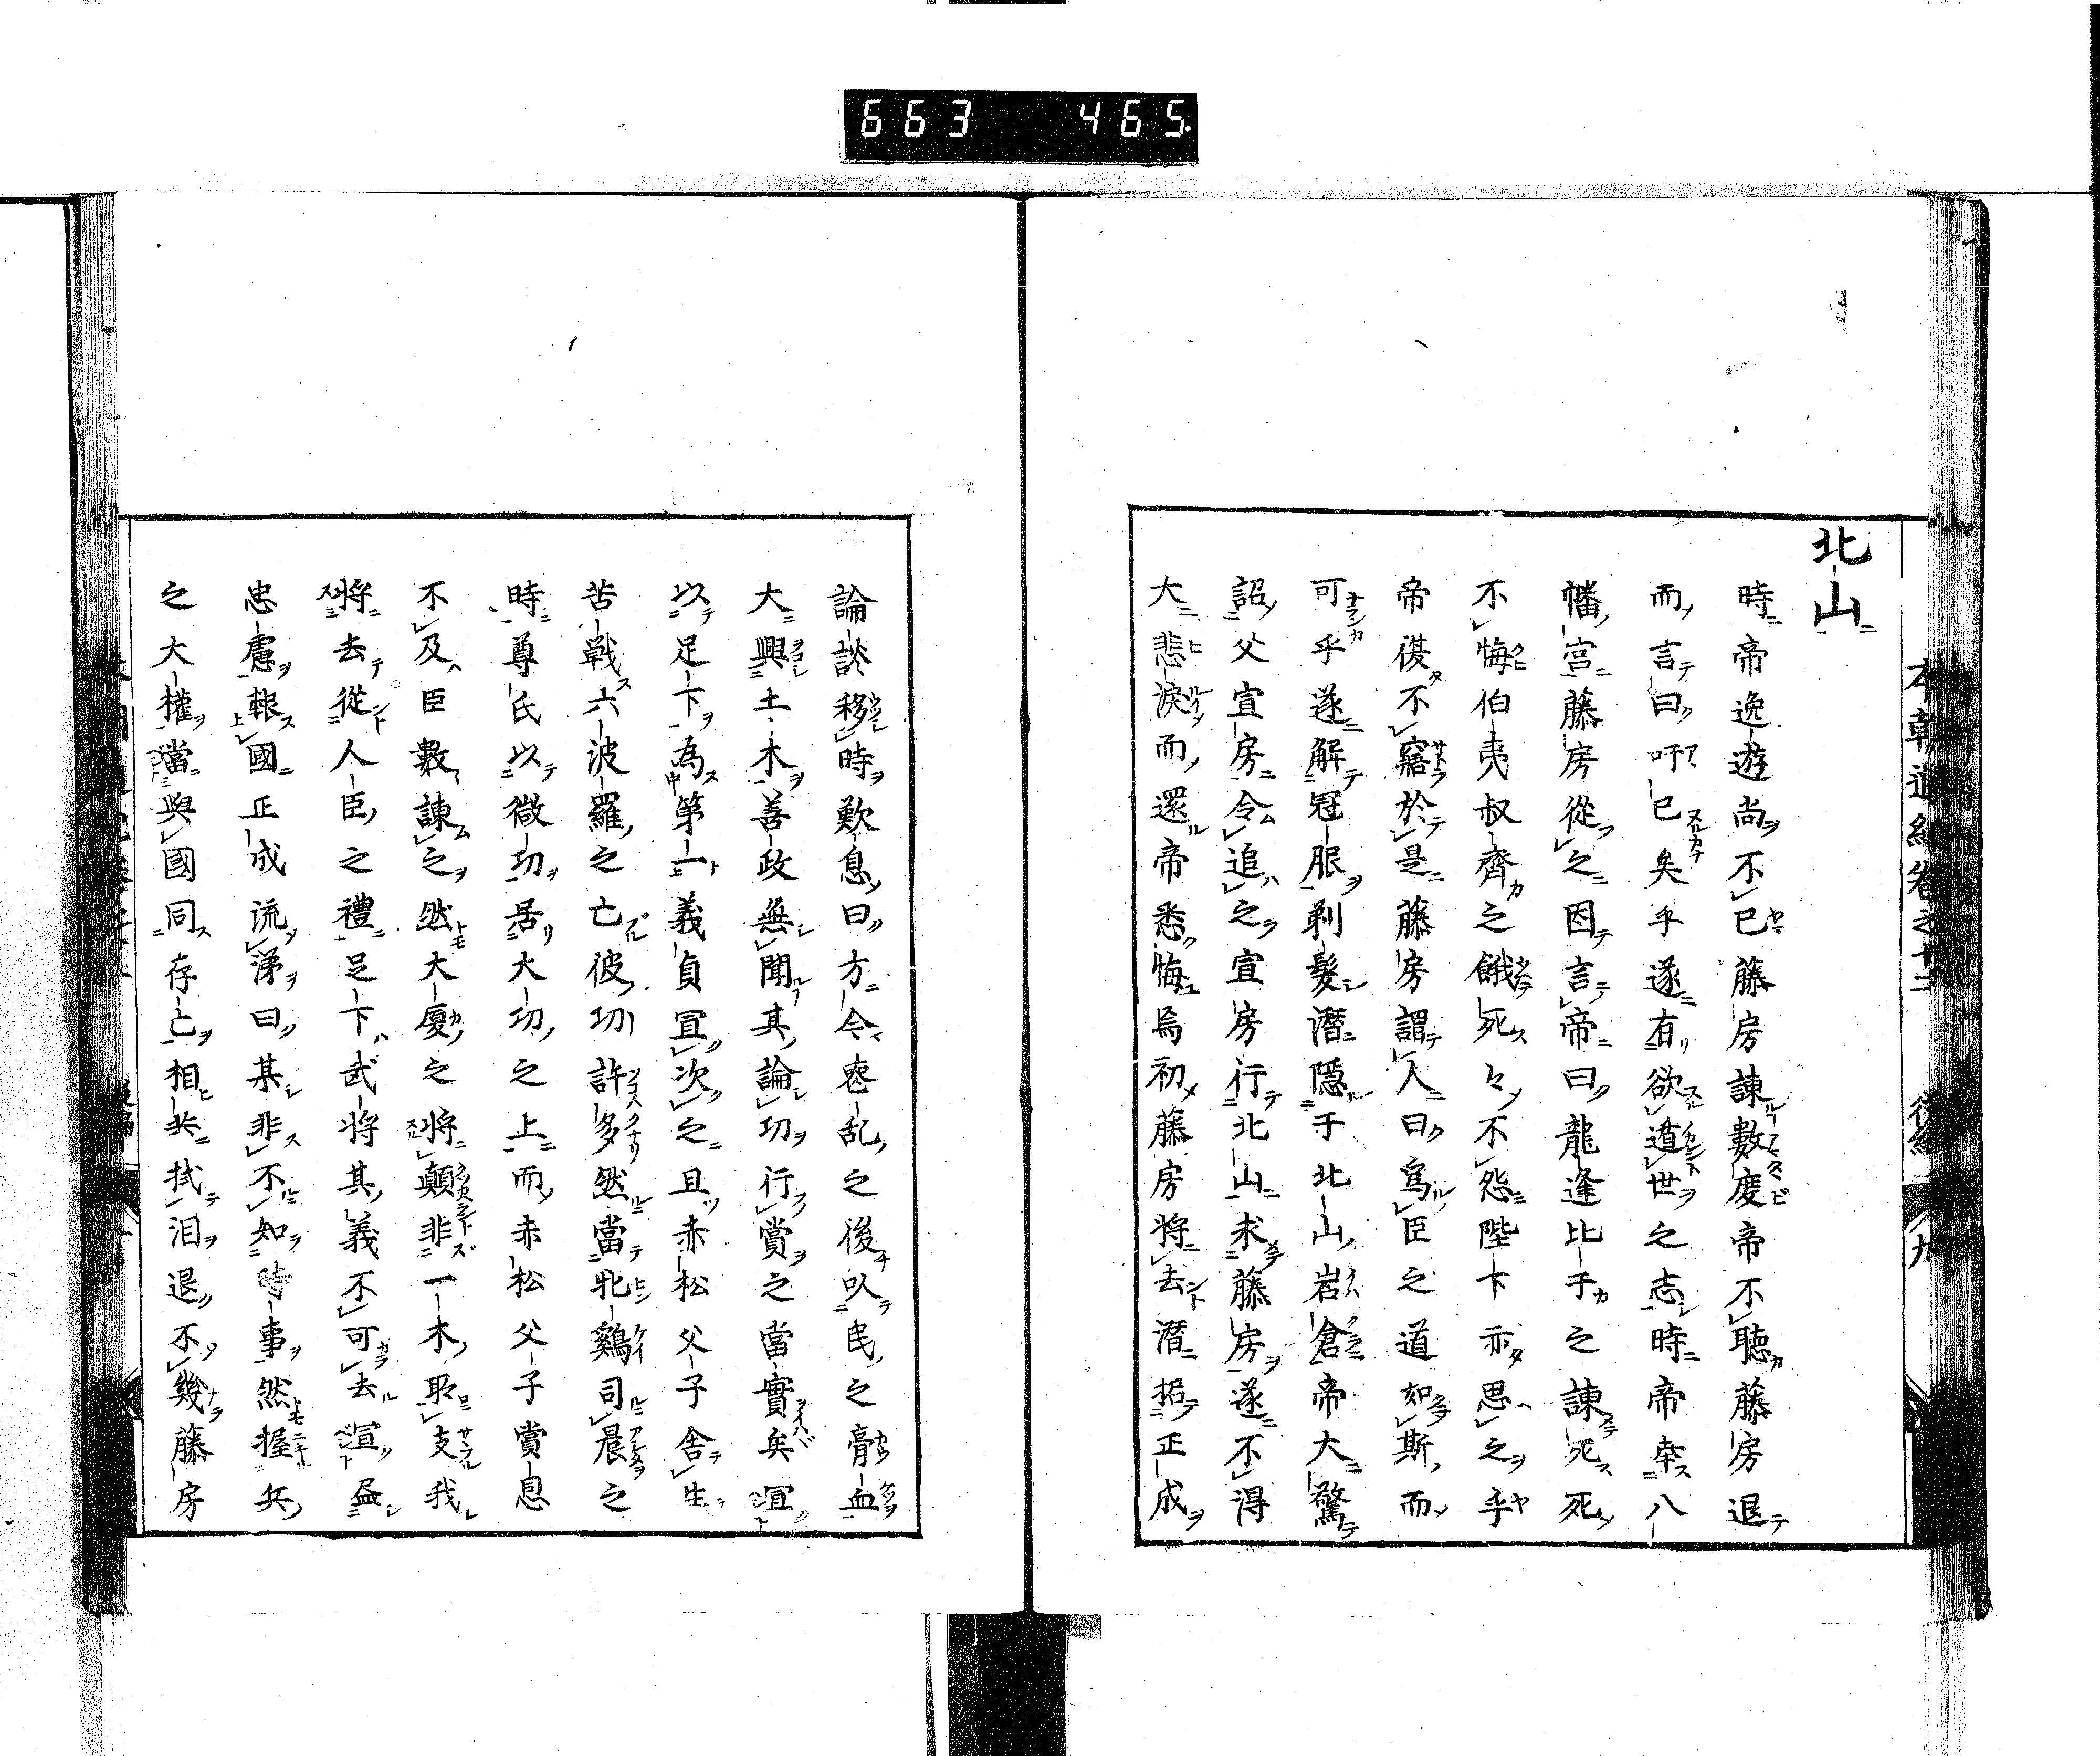 663 465
北山
時帝逸遊尚不已藤房諫數度帝不聴藤房退
而言曰吁已矣乎遂有欲遁世之志時帝幸八
幡宮藤房從之因言帝曰龍逢比干之諫死死
不悔伯夷叔齊之餓死々不怨陛下亦思之乎
帝復不寤於是藤房謂人曰爲臣之道如斯而
可乎遂解冠服剃髮潛隱于北山岩倉帝大驚
詔父宣房令追之宣房行北山求藤房遂不得
大悲淚而還帝悉悔焉初藤房將去潛招正成
論談移時歎息曰方今喪乱之後以民之膏血
大興土木善政無聞其論功行賞之當實矣宜
以足下為第一義貞宜次之且赤松父子舎生
苦戰六波羅之亡彼功許多然當牝鷄司晨之
時尊氏以微功居大功之上而赤松父子賞息
不及臣數諫之然大廈之將顛非一木所支我
將去從人臣之禮足下武將其義不可去宜盡
忠慮報國正成流涕曰某非不知時事然握兵
之大權當與國同存亡相共拭泪退不幾藤房